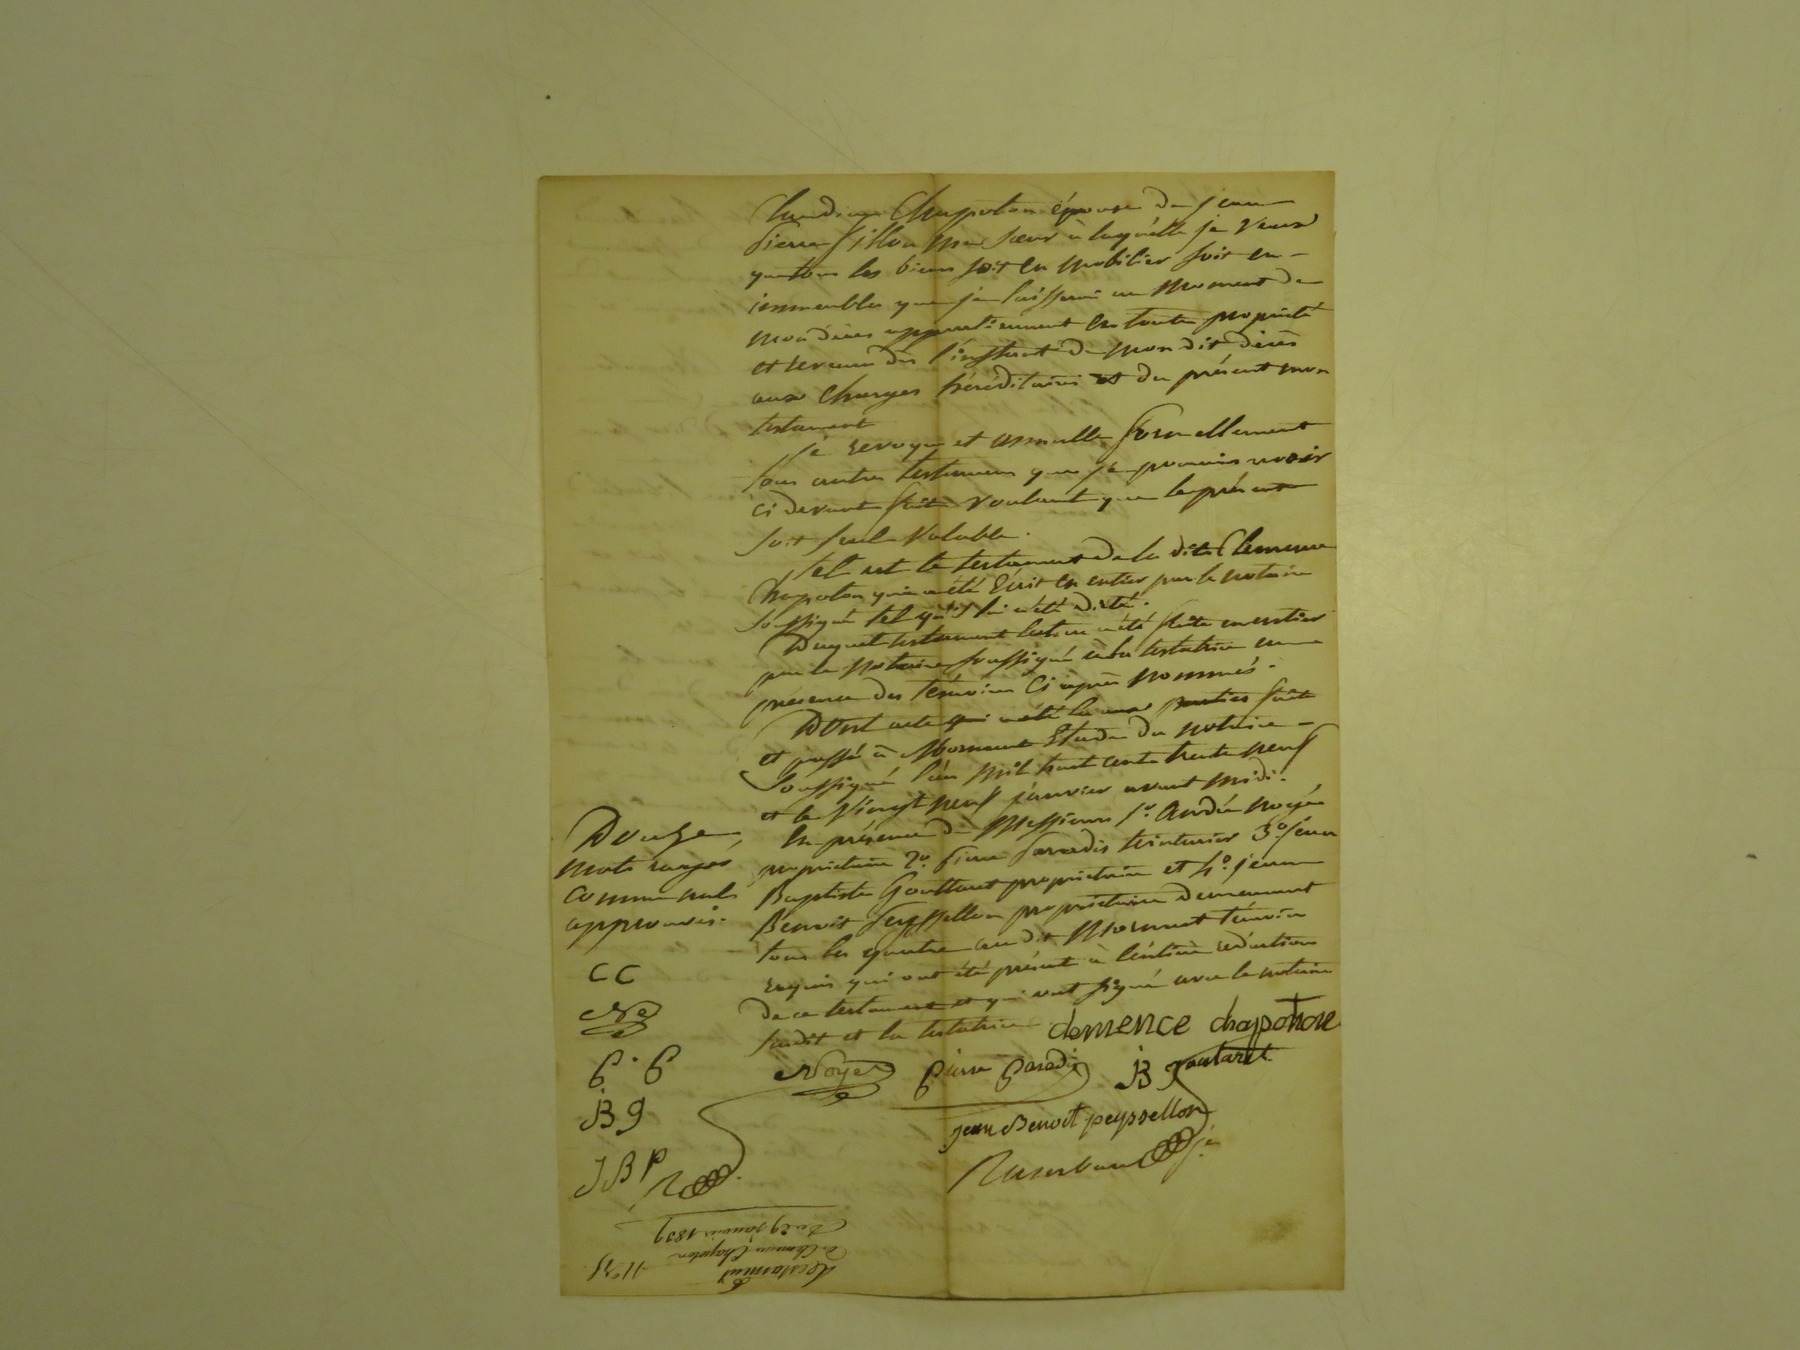 Claudine Chapoton épouse de jean
Pierre fillon ma sœur à laquelle je veux
que tous les biens soit en mobilier soit en
immeubles que je laisserai au moment de
mon décès appartiennent en toute propriété
et revenu dès l'instant de mon dit décès
aux charges héréditaires et du présent mon
testament
Je revoque et annulle formellement
tous autres testamens que je pourrais avoir
ci devant faits voulant que le présent
soit seul valable.
Tel est le testament de la dite Clemence
Chapoton qui a été écrit en entier par le notaire
soussigné tel qu'il lui a été dicté.
Duquel testament lecture a été faite en entier
par le notaire soussigné à la testatrice en
présence des témoins ci après nommés.
Dont acte qui a été lu aux parties fait
et passé à Mornant Etude du notaire
soussigné l'an mil huit cent trente neuf
et le vingt neuf janvier avant midi.
En présence de Messieurs 1º. André Noyer
propriétaire 2º. Pierre Paradis teinturier 3º. jean
Baptiste Gouttaret propriétaire et 4º. jean
Benoit Peyssellon propriétaire demeurant
tous les quatre au dit Mornant témoins
requis qui ont été présent à l'entière rédaction
de ce testament et qui ont signé avec le notaire
susdit et la testatrice
clemence chapoton
Noyer Pierre Paradis JB Goutaret
jean Benoit peyssellon
Douze
mots rayés
comme nuls
approuvés.
CC
No
P. P
JB g
JBP
Testament
de Clemence Chapoton
Du 29 Janvier 1839